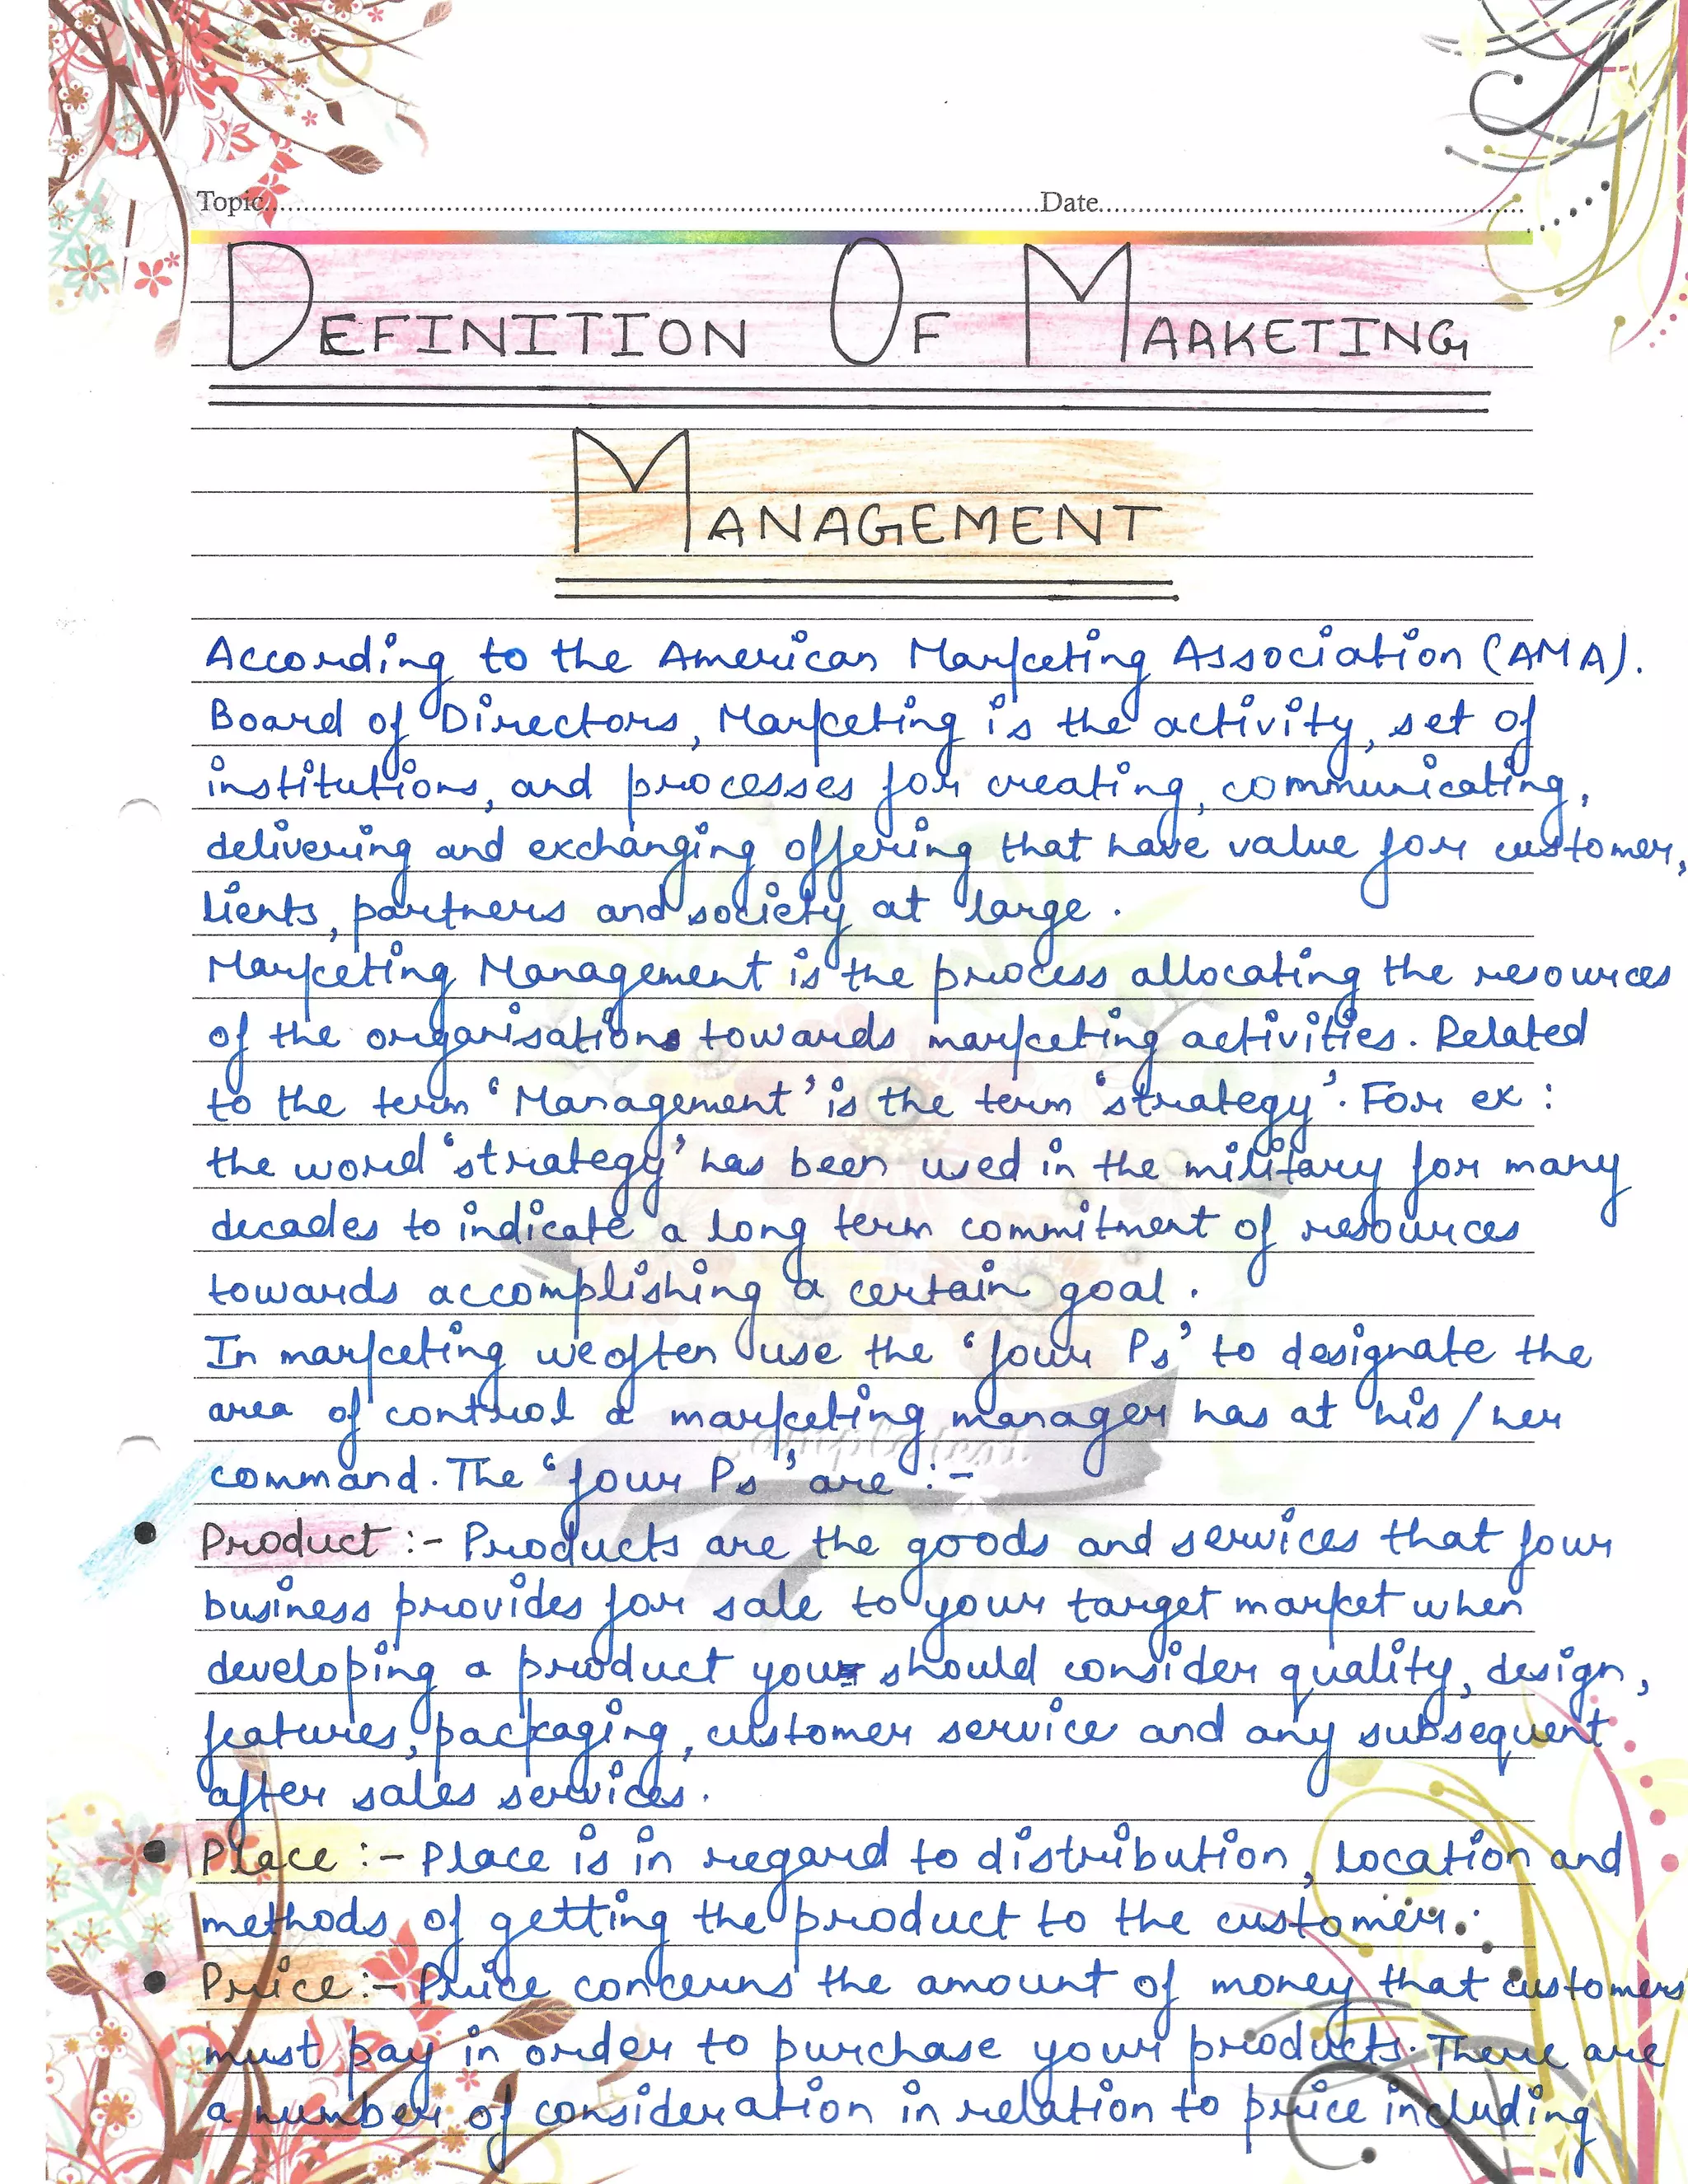 Topic Date
DEFINITION OF MARKETING
MANAGEMENT
According to the American Marketing Association (AMA).
Board of Directors, Marketing is the activity, set of
institutions, and processes for creating, communicating,
delivering and exchanging offering that have value for customer,
lients, partners and society at large.
Marketing Management is the process allocating the resources
of the organisations towards marketing activities. Related
to the term 'Management' is the term 'strategy'. For ex :
the word 'strategy' has been used in the military for many
decades to indicate a long term commitment of resources
towards accomplishing a certain goal.
In marketing we often use the 'four Ps' to designate the
area of control a marketing manager has at his/her
command. The 'four Ps' are :-
• Product :- Products are the goods and services that four
business provides for sale to your target market when
developing a product you should consider quality, design,
features, packaging, customer service and any subsequent
after sales services.
• Place :- Place is in regard to distribution, location and
methods of getting the product to the customer.
• Price :- Price concerns the amount of money that customers
must pay in order to purchase your products. There are
a number of consideration in relation to price including